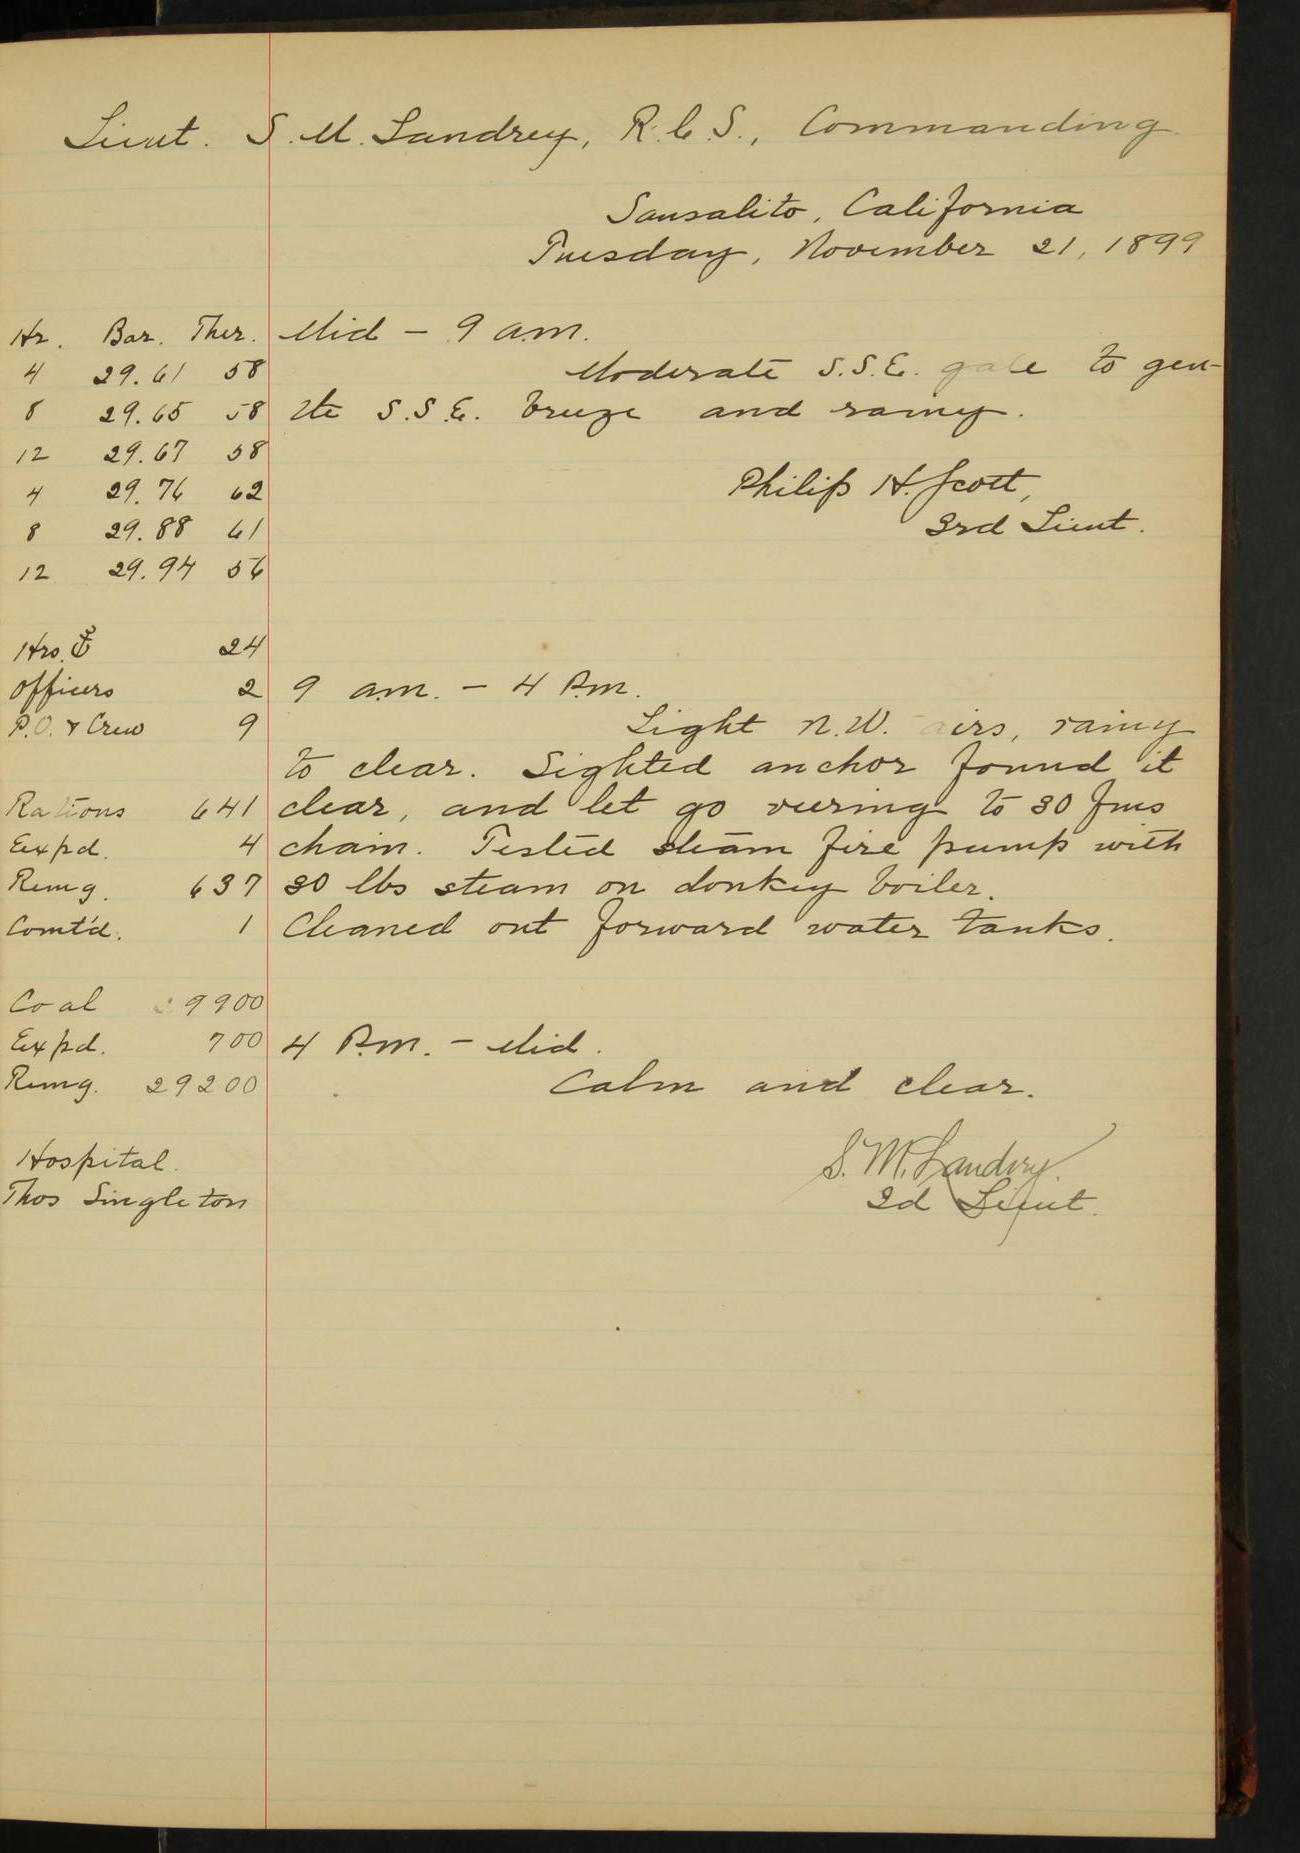 Lieut. S. M. Landrey, R.C.S., Commanding
Sausalito, California
Tuesday, November 21, 1899
Hr. Bar. Ther.
4 29.61 58
8 29.65 58
12 29.67 58
4 29.76 62
8 29.88 61
12 29.94 56
Hrs. ⚓ 24
Officers 2
P.O. & Crew 9
Rations 641
Expd. 4
Remg. 637
Comt'd. 1
Coal 29900
Expd. 700
Remg. 29200
Hospital.
Thos Singleton
Mid – 9 a.m.
Moderate S.S.E. gale to gen-
tle S.S.E. breeze and rainy.
Philip H. Scott,
3rd Lieut.
9 a.m. – 4 P.m.
Light N.W. airs, rainy
to clear. Sighted anchor found it
clear, and let go veering to 30 fms
chain. Tested steam fire pump with
30 lbs steam on donkey boiler.
Cleaned out forward water tanks.
4 P.m. – Mid.
Calm and clear.
S. M. Landrey.
2d Lieut.